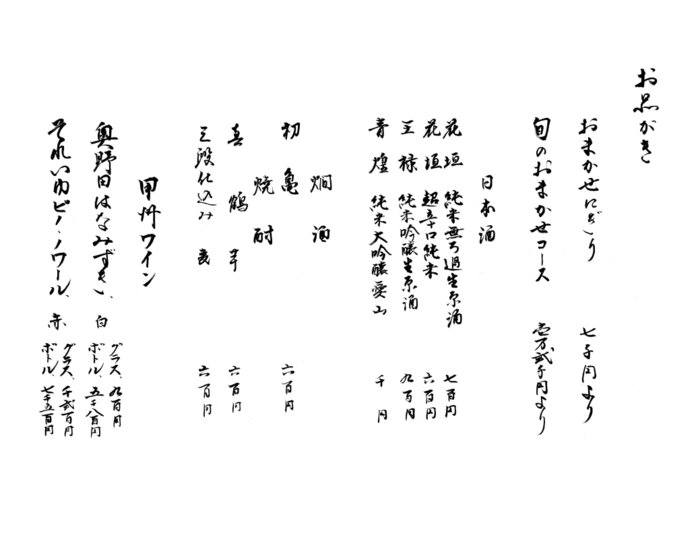 お品がき
おまかせにぎり 七千円より
旬のおまかせコース 壱万弐千円より
日本酒
花垣 純米無ろ過生原酒 七百円
花垣 超辛口純米 六百円
王禄 純米吟醸生原酒 九百円
青煌 純米大吟醸愛山 千円
燗酒
初亀 六百円
焼酎
真鶴 芋 六百円
三段仕込み 麦 六百円
甲州ワイン
奥野田はなみずき、白 グラス、九百円
ボトル、五千八百円
それいゆピノ・ノワール、赤 グラス、千弐百円
ボトル、七千五百円